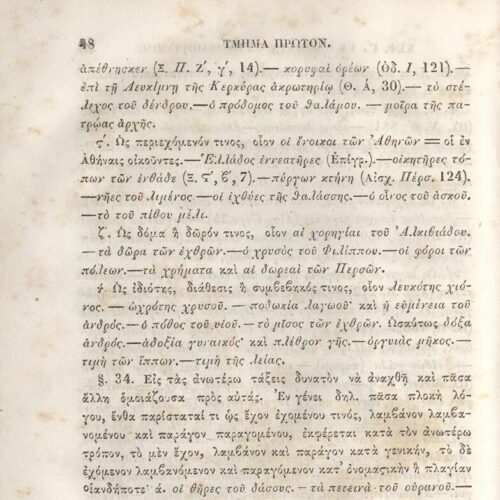 48 ΤΜΗΜΑ ΠΡΩΤΟΝ.
ἀπέθνησκεν (Ξ. Π. Ζ′, γ′, 14).— κορυφαὶ ὀρέων (Ὀδ. Ι, 121).—
ἐπὶ τῇ Λευκίμνῃ τῆς Κερκύρας ἀκρωτηρίῳ (Θ. Ά, 30).— τὸ στέ-
λεχος τοῦ δένδρου.—ὁ πρόδομος τοῦ θαλάμου.— μοῖρα τῆς πα-
τρῴας ἀρχῆς.
ϛ′. Ὡς περιεχόμενόν τινος, οἷον οἱ ἔνοικοι τῶν Ἀθηνῶν = οἱ ἐν
Ἀθήναις οἰκοῦντες.—Ἑλλάδος ἐννεατῆρες (Ἐπίγρ.).—οἰκητῆρες τό-
πων τῶν ἐνθάδε (Ξ. ϛ′, β′, 7).—πύργων κτήνη (Αἰσχ. Πέρσ. 124).
—νῆες τοῦ λιμένος.—οἱ ἰχθύες τῆς θαλάσσης.—ὁ οἶνος τοῦ ἀσκοῦ.
—τὸ τοῦ πίθου μέλι.
ζ′. Ὡς δόμα ἢ δῶρόν τινος, οἷον αἱ χορηγίαι τοῦ Ἀλκιβιάδου.
—τὰ δῶρα τῶν ἐχθρῶν.—ὁ χρυσὸς τοῦ Φιλίππου.—οἱ φόροι τῶν
πόλεων.—τὰ χρήματα καὶ αἱ δωρεαὶ τῶν Περσῶν.
ή. Ὡς ἰδιότης, διάθεσις ἢ συμβεβηκός τινος, οἷον λευκότης χιό-
νος.—ὠχρότης χρυσοῦ.— ποδωκία λαγωοῦ· καὶ ἡ εὐμένεια τοῦ
ἀνδρός.—ὁ πόθος τοῦ υἱοῦ.—τὸ μῖσος τῶν ἐχθρῶν. Ὡσαύτως δόξα
ἀνδρός.—ἀδοξία γυναικός· καὶ πλέθρον γῆς.—ὀργυιᾶς μῆκος.—
τιμὴ τῶν ἵππων.—τιμὴ τῆς λείας.
§. 34. Εἰς τὰς ἀνωτέρω τάξεις δυνατὸν νὰ ἀναχθῇ καὶ πᾶσα
ἄλλη ὁμοιάζουσα πρὸς αὐτάς. Ἐν γένει δηλ. πᾶσα πλοκὴ λό-
γου, ἔνθα παρίσταταί τι ὡς ἔχον ἐχομένου τινός, λαμβάνον λαμβα-
νομένου καὶ παράγον παραγομένου, ἐκφέρεται κατὰ τὸν ἀνωτέρω
τρόπον, τὸ μὲν ἔχον, λαμβάνον καὶ παράγον κατὰ γενικήν, τὸ δὲ
ἐχόμενον λαμβανόμενον καὶ παραγόμενον κατ' ὀνομαστικὴν ἢ πλαγίαν
οἱανδήποτε· ά. οἱ θῆρες τοῦ δάσους.— τὰ πετεινὰ τοῦ οὐρανοῦ.—